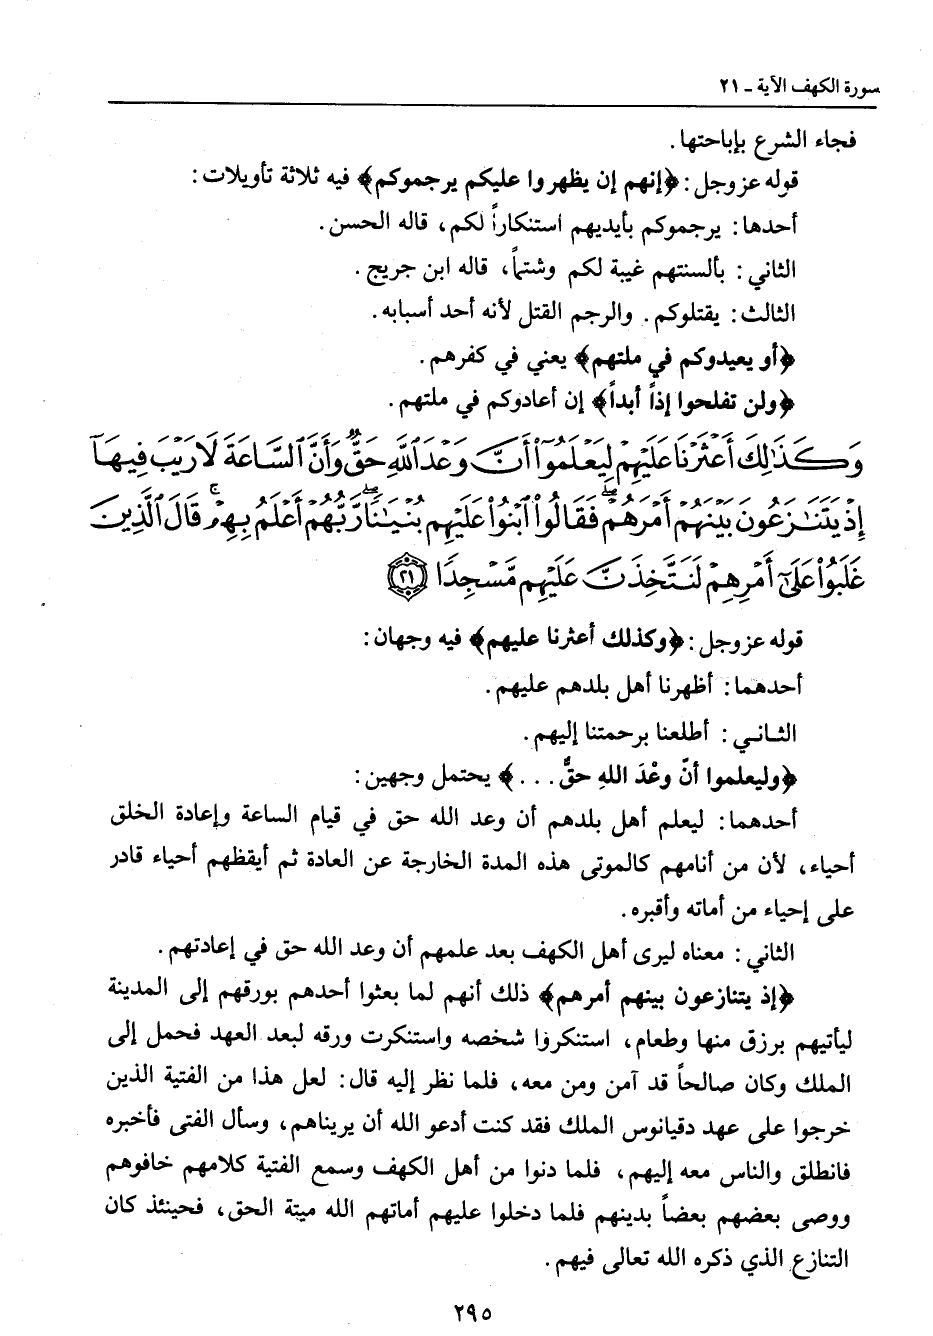 سورة الكهف الآية ـ ٢١
فجاء الشرع بإباحتها.
قوله عز وجل: ﴿إنهم إن يظهروا عليكم يرجموكم﴾ فيه ثلاثة تأويلات:
أحدها: يرجموكم بأيديهم استنكاراً لكم، قاله الحسن.
الثاني: بألسنتهم غيبة لكم وشتماً، قاله ابن جريج.
الثالث: يقتلوكم. والرجم القتل لأنه أحد أسبابه.
﴿أو يعيدوكم في ملتهم﴾ يعني في كفرهم.
﴿ولن تفلحوا إذاً أبداً﴾ إن أعادوكم في ملتهم.
وَكَذَٰلِكَ أَعْثَرْنَا عَلَيْهِمْ لِيَعْلَمُوٓا۟ أَنَّ وَعْدَ ٱللَّهِ حَقٌّ وَأَنَّ ٱلسَّاعَةَ لَا رَيْبَ فِيهَآ
إِذْ يَتَنَٰزَعُونَ بَيْنَهُمْ أَمْرَهُمْ ۖ فَقَالُوا۟ ٱبْنُوا۟ عَلَيْهِم بُنْيَٰنًا ۖ رَّبُّهُمْ أَعْلَمُ بِهِمْ ۚ قَالَ ٱلَّذِينَ
غَلَبُوا۟ عَلَىٰٓ أَمْرِهِمْ لَنَتَّخِذَنَّ عَلَيْهِم مَّسْجِدًا ٢١
قوله عز وجل: ﴿وكذلك أعثرنا عليهم﴾ فيه وجهان:
أحدهما: أظهرنا أهل بلدهم عليهم.
الثاني: أطلعنا برحمتنا إليهم.
﴿وليعلموا أنّ وعْدَ اللهِ حقٌّ . . .﴾ يحتمل وجهين:
أحدهما: ليعلم أهل بلدهم أن وعد الله حق في قيام الساعة وإعادة الخلق
أحياء، لأن من أنامهم كالموتى هذه المدة الخارجة عن العادة ثم أيقظهم أحياء قادر
على إحياء من أماته وأقبره.
الثاني: معناه ليرى أهل الكهف بعد علمهم أن وعد الله حق في إعادتهم.
﴿إذ يتنازعون بينهم أمرهم﴾ ذلك أنهم لما بعثوا أحدهم بورقهم إلى المدينة
ليأتيهم برزق منها وطعام، استنكروا شخصه واستنكرت ورقه لبعد العهد فحمل إلى
الملك وكان صالحاً قد آمن ومن معه، فلما نظر إليه قال: لعل هذا من الفتية الذين
خرجوا على عهد دقيانوس الملك فقد كنت أدعو الله أن يريناهم، وسأل الفتى فأخبره
فانطلق والناس معه إليهم، فلما دنوا من أهل الكهف وسمع الفتية كلامهم خافوهم
ووصى بعضهم بعضاً بدينهم فلما دخلوا عليهم أماتهم الله ميتة الحق، فحينئذ كان
التنازع الذي ذكره الله تعالى فيهم.
٢٩٥